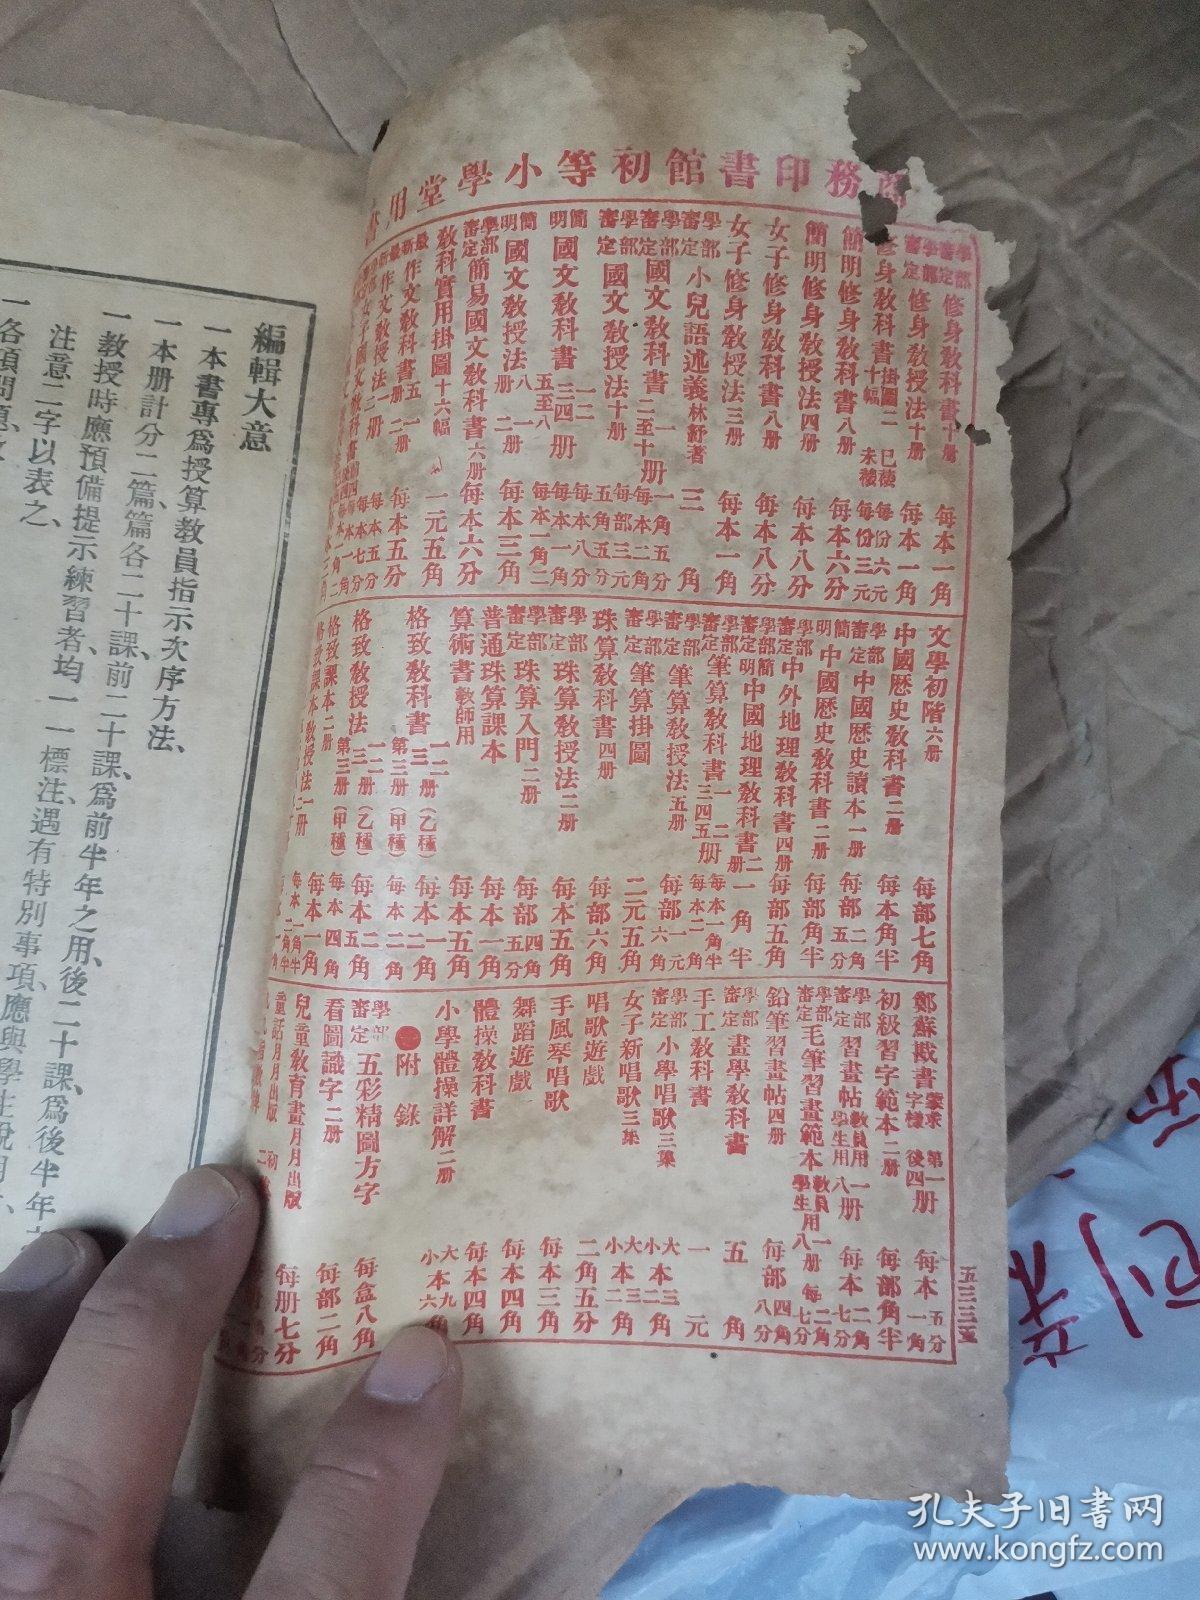 商務印書館初等小學堂用書
學部審定 修身教科書十册 每本一角
學部審定 修身教授法十册 每本一角
修身教科書掛圖二十幅 已裱 每份六元 未裱 每份三元
簡明修身教科書八册 每本六分
簡明修身教授法四册 每本八分
女子修身教科書八册 每本八分
女子修身教授法三册 每本一角
學部審定 小兒語述義林紓著 三角
學部審定 國文教科書 一 二至十册 一角五分 每本二角
學部審定 國文教授法十册 每部三元 五角五分
簡明 國文教科書 一二 三四 五至八 册 每本一角 每本八分
簡明 國文教授法 八册 一册 二册 每本一角二 每本三角
學部審定 簡易國文教科書六册 每本六分
教科實用掛圖十六幅 一元五角
最新作文教科書 五册 一册 二册 每本五分
文學初階六册 每部七角
中國歷史教科書二册 每本角半
學部審定 中國歷史讀本一册 每部二角五分
簡明 中國歷史教科書二册 每部角半
學部審定 中外地理教科書四册 每部五角
學部審定 簡明中國地理教科書二册 一角半
學部審定 筆算教科書 一二 三四五 册 每本一角半 每本二角
學部審定 筆算教授法五册 每部一元六角
筆算掛圖 二元五角
珠算教科書四册 每部六角
學部審定 珠算教授法二册 每本五角
學部審定 珠算入門二册 每部四角五分
普通珠算課本 每本一角
算術書教師用 每本五角
格致教科書 一二三册(乙種) 第三册(甲種) 每本一角 每本二角
格致教授法 一二三册(乙種) 第三册(甲種) 每本五角 每本四角
格致課本二册 每本一角
鄭蘇戡書 蒙求 字樣 第一 後四 册 每本五分 一角
初級習字範本二册 每部角半
學部審定 習畫帖 教員用一册 學生用八册 每本二角 七分
學部審定 毛筆習畫範本 教員用一册 學生用八册 每二角 七分
鉛筆習畫帖四册 每部四角八分
學部審定 畫學教科書 五角
手工教科書 一元
學部審定 小學唱歌三集 大本三角 小本二角
女子新唱歌三集 大本三角 小本二角
唱歌遊戲 二角五分
手風琴唱歌 每本三角
舞蹈遊戲 每本四角
體操教科書 每本四角
小學體操詳解二册 大本九角 小本六角
●附錄
學部審定 五彩精圖方字 每盒八角
看圖識字二册 每部二角
兒童教育畫月月出版 每册七分
童話月月出版 初 二
五三三五
編輯大意
一本書專爲授算教員指示次序方法、
一本册計分二篇篇各二十課前二十課、爲前半年之用、後二十課、爲後半年
一教授時應預備提示練習者、均一一標注、遇有特別事項、應與學生說明
注意二字以表之、
一各項問題
孔夫子旧书网
www.kongfz.com